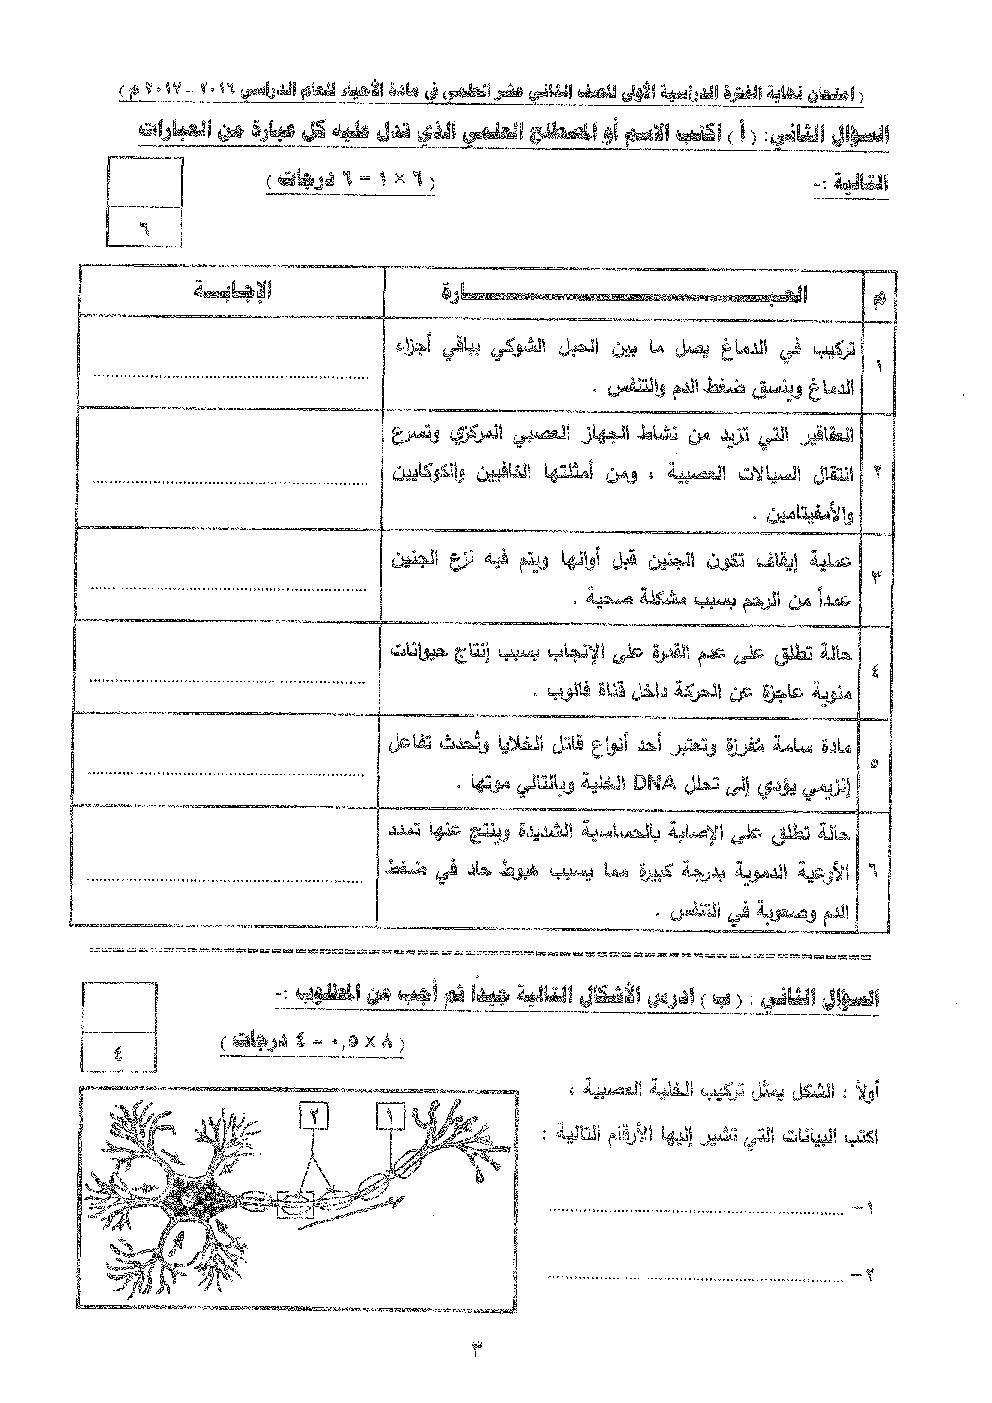 ( امتحان نهاية الفترة الدراسية الأولى للصف الثاني عشر العلمي في مادة الأحياء للعام الدراسي ٢٠١٦ - ٢٠١٧ م )
السؤال الثاني: ( أ ) اكتب الاسم أو المصطلح العلمي الذي تدل عليه كل عبارة من العبارات
التالية :-
( ٦ × ١ = ٦ درجات )
٦
م
العبـــــــــــــــارة
الإجابـــة
١
تركيب في الدماغ يصل ما بين الحبل الشوكي بباقي أجزاء
الدماغ وينسق ضغط الدم والتنفس .
٢
العقاقير التي تزيد من نشاط الجهاز العصبي المركزي وتسرع
انتقال السيالات العصبية ، ومن أمثلتها الكافيين والكوكايين
والأمفيتامين .
٣
عملية إيقاف تكون الجنين قبل أوانها ويتم فيه نزع الجنين
عمداً من الرحم بسبب مشكلة صحية .
٤
حالة تطلق على عدم القدرة على الإنجاب بسبب إنتاج حيوانات
منوية عاجزة عن الحركة داخل قناة فالوب .
٥
مادة سامة مُفرزة وتعتبر أحد أنواع قاتل الخلايا وتُحدث تفاعل
إنزيمي يؤدي إلى تحلل DNA الخلية وبالتالي موتها .
٦
حالة تطلق على الإصابة بالحساسية الشديدة وينتج عنها تمدد
الأوعية الدموية بدرجة كبيرة مما يسبب هبوط حاد في ضغط
الدم وصعوبة في التنفس .
السؤال الثاني : ( ب ) ادرس الأشكال التالية جيداً ثم أجب عن المطلوب :-
( ٨ × ٠,٥ = ٤ درجات )
٤
أولاً : الشكل يمثل تركيب الخلية العصبية ،
اكتب البيانات التي تشير إليها الأرقام التالية :
١-
٢-
١
٢
٣